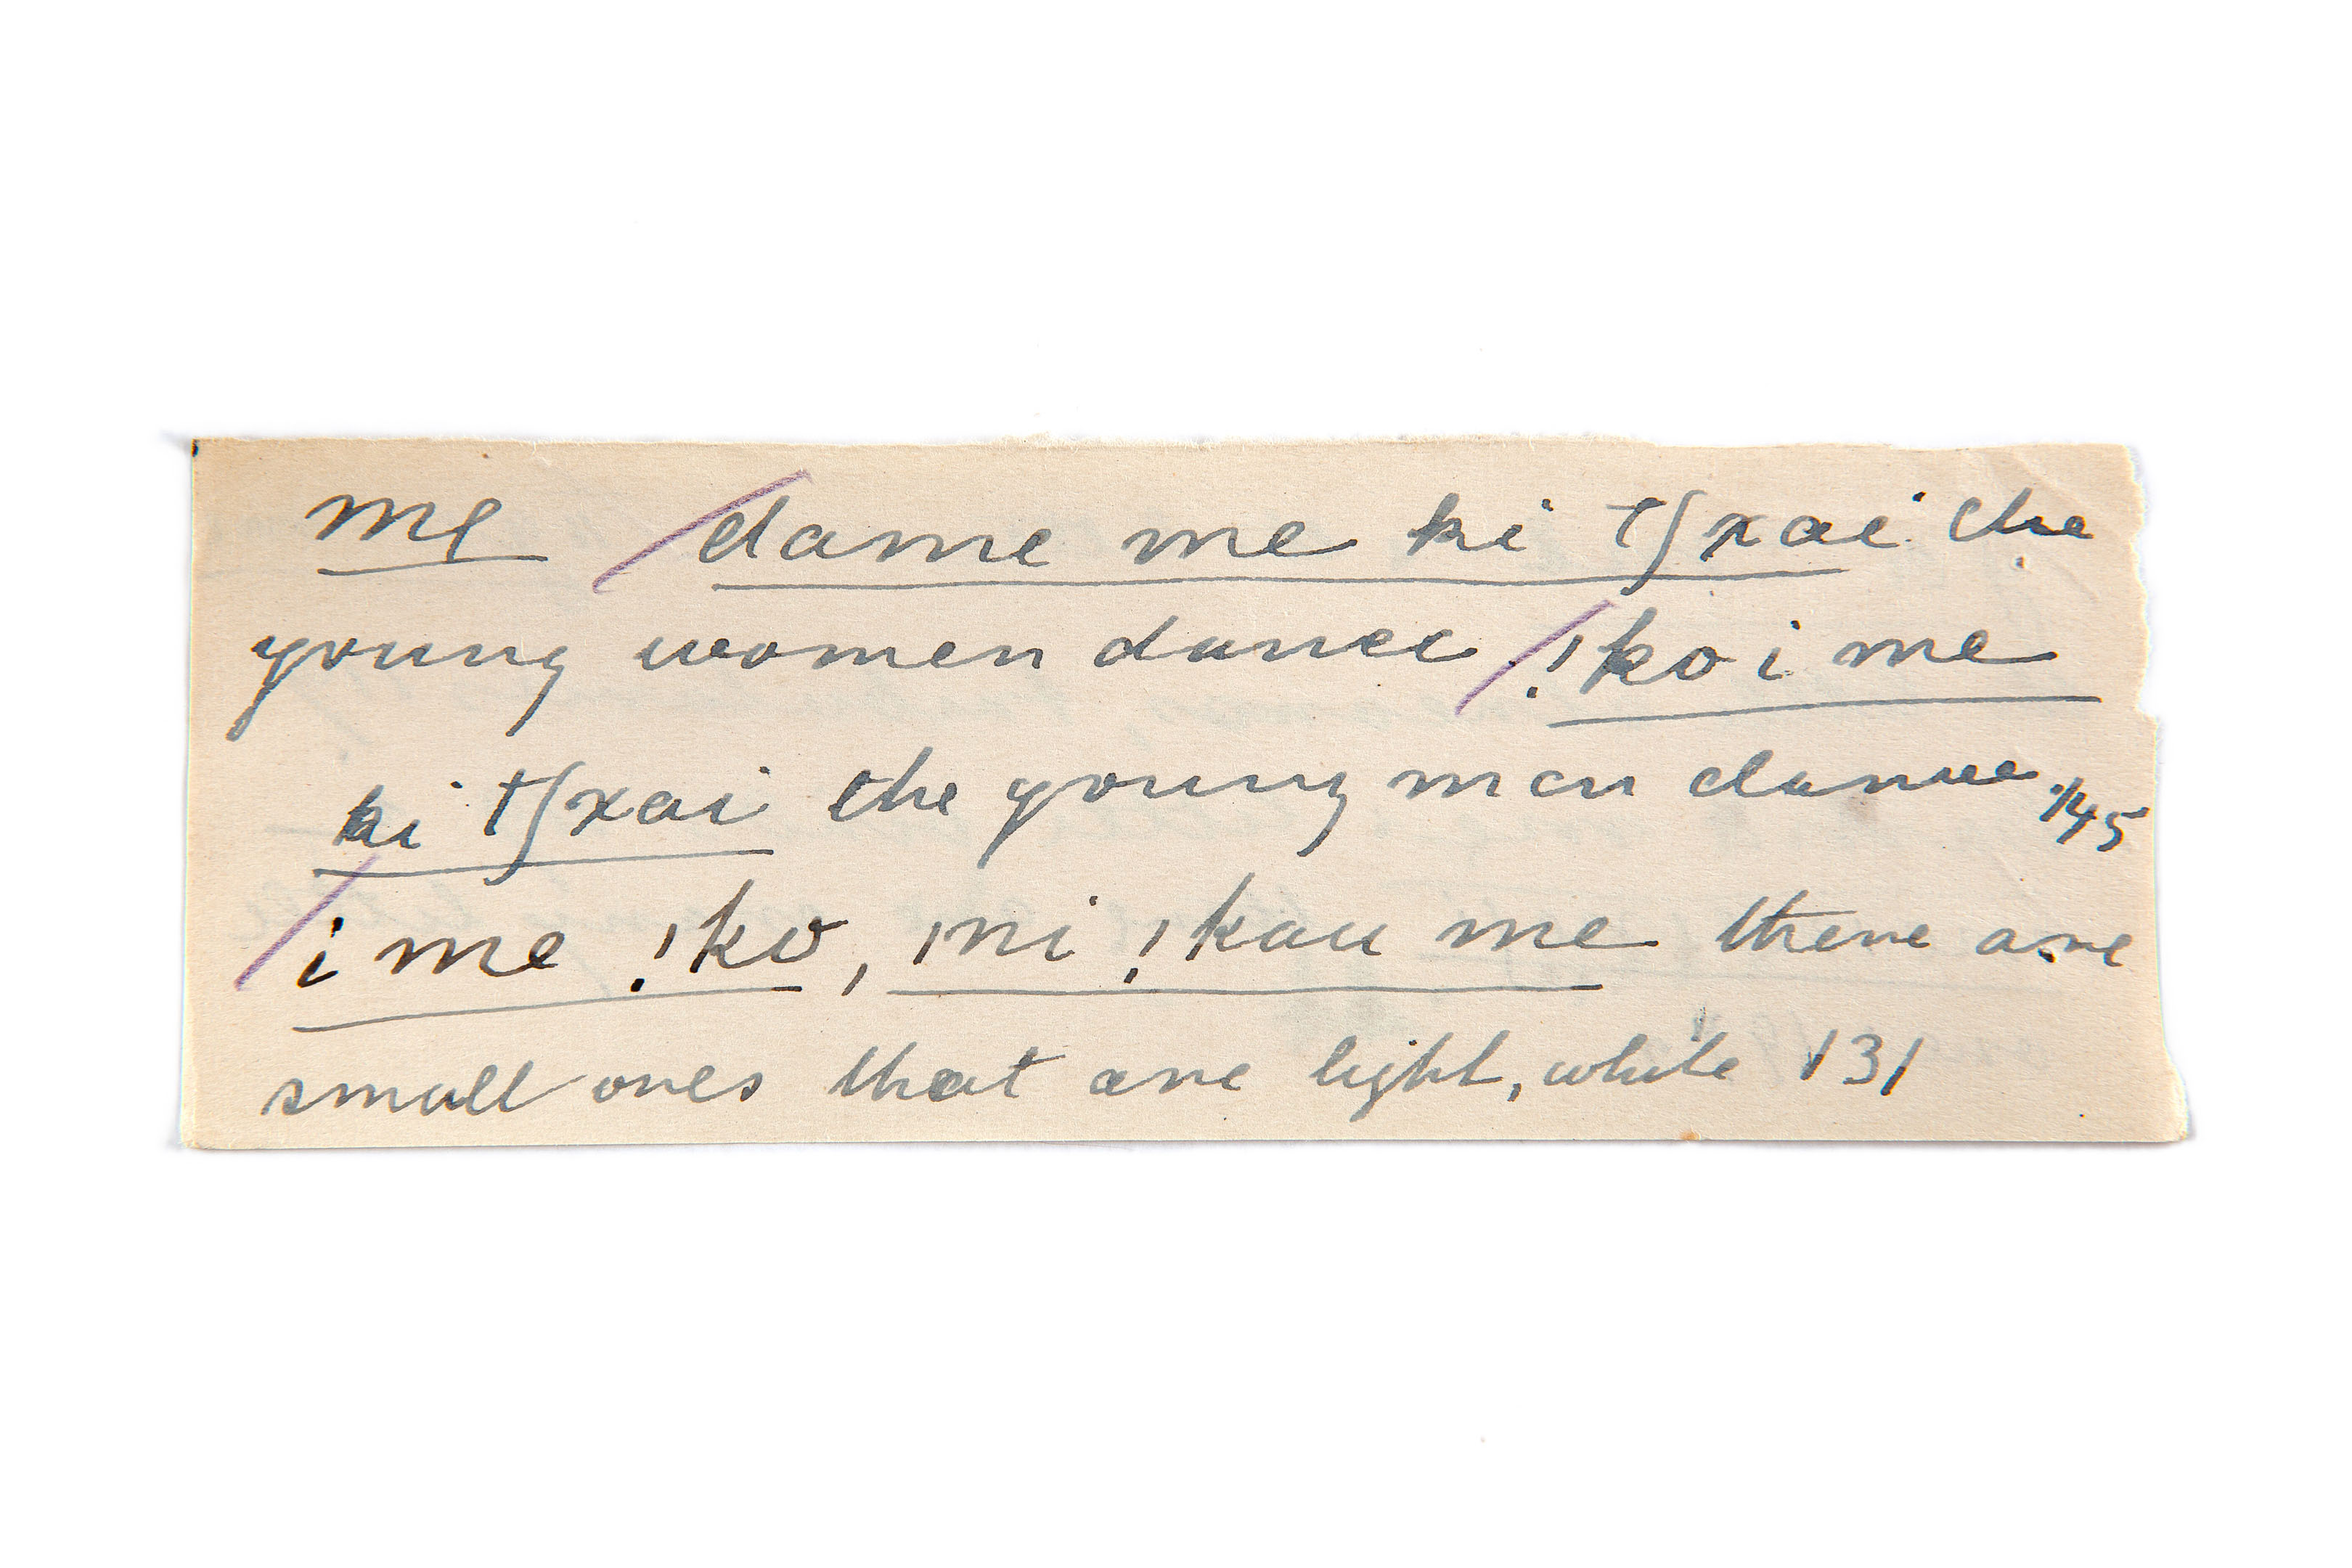 me dame me ki tʃxai the
young women dance !koi me
ki tʃxai the young men dance 145
i me !ko, ǀni !kau me there are
small ones that are light, white 131